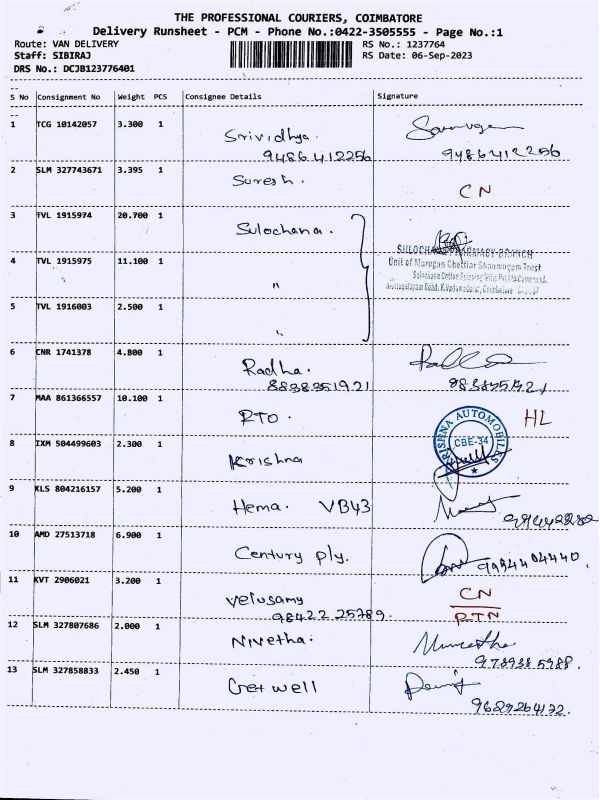 THE PROFESSIONAL COURIERS, COIMBATORE
Delivery Runsheet - PCM - Phone No.:0422-3505555 - Page No.:1
Route: VAN DELIVERY RS No.: 1237764
Staff: SIBIRAJ RS Date: 06-Sep-2023
DRS No.: DCJB123776401
S No Consignment No Weight PCS Consignee Details Signature
1 TCG 10142057 3.300 1 Srividhya.
9486412256 9486412256
2 SLM 327743671 3.395 1 Suresh. CN
3 TVL 1915974 20.700 1 Sulochana.
SULOCHANA PHARMACY-BRANCH
4 TVL 1915975 11.100 1 "
Unit of Murugan Chettiar Shanmugam Trest
5 TVL 1916003 2.500 1 "
6 CNR 1741378 4.800 1 Radha.
8838351921
7 MAA 861366557 10.100 1 RTO. HL
KRISHNA AUTOMOBILES
CBE-34
8 IXM 504499603 2.300 1 Krishna
9 KLS 804216157 5.200 1 Hema. VB43
10 AMD 27513718 6.900 1 Century ply. 9994404440.
11 KVT 2906021 3.200 1 Velusamy CN
98422 25789. RTN
12 SLM 327807686 2.000 1 Nivetha.
13 SLM 327858833 2.450 1 Getwell